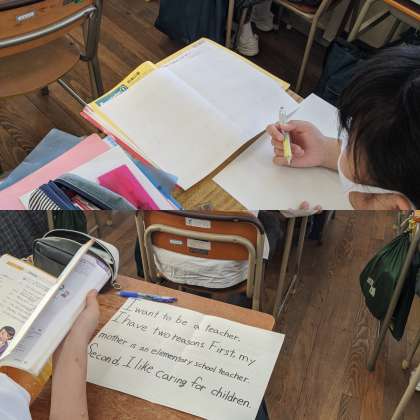 I want to be a teacher.
I have two reasons. First, my
mother is an elementary school teacher.
Second, I like caring for children.